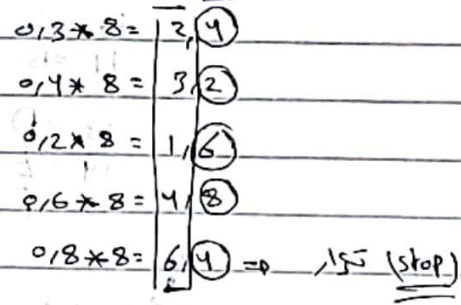 0,3 * 8 = 2,4
0,4 * 8 = 3,2
0,2 * 8 = 1,6
0,6 * 8 = 4,8
0,8 * 8 = 6,4 => تكرار (stop)